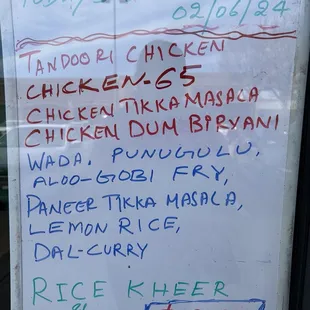 02/06/24
TANDOORI CHICKEN
CHICKEN-65
CHICKEN TIKKA MASALA
CHICKEN DUM BIRYANI
WADA. PUNUGULU,
ALOO-GOBI FRY,
PANEER TIKKA MASALA,
LEMON RICE,
DAL-CURRY
RICE KHEER